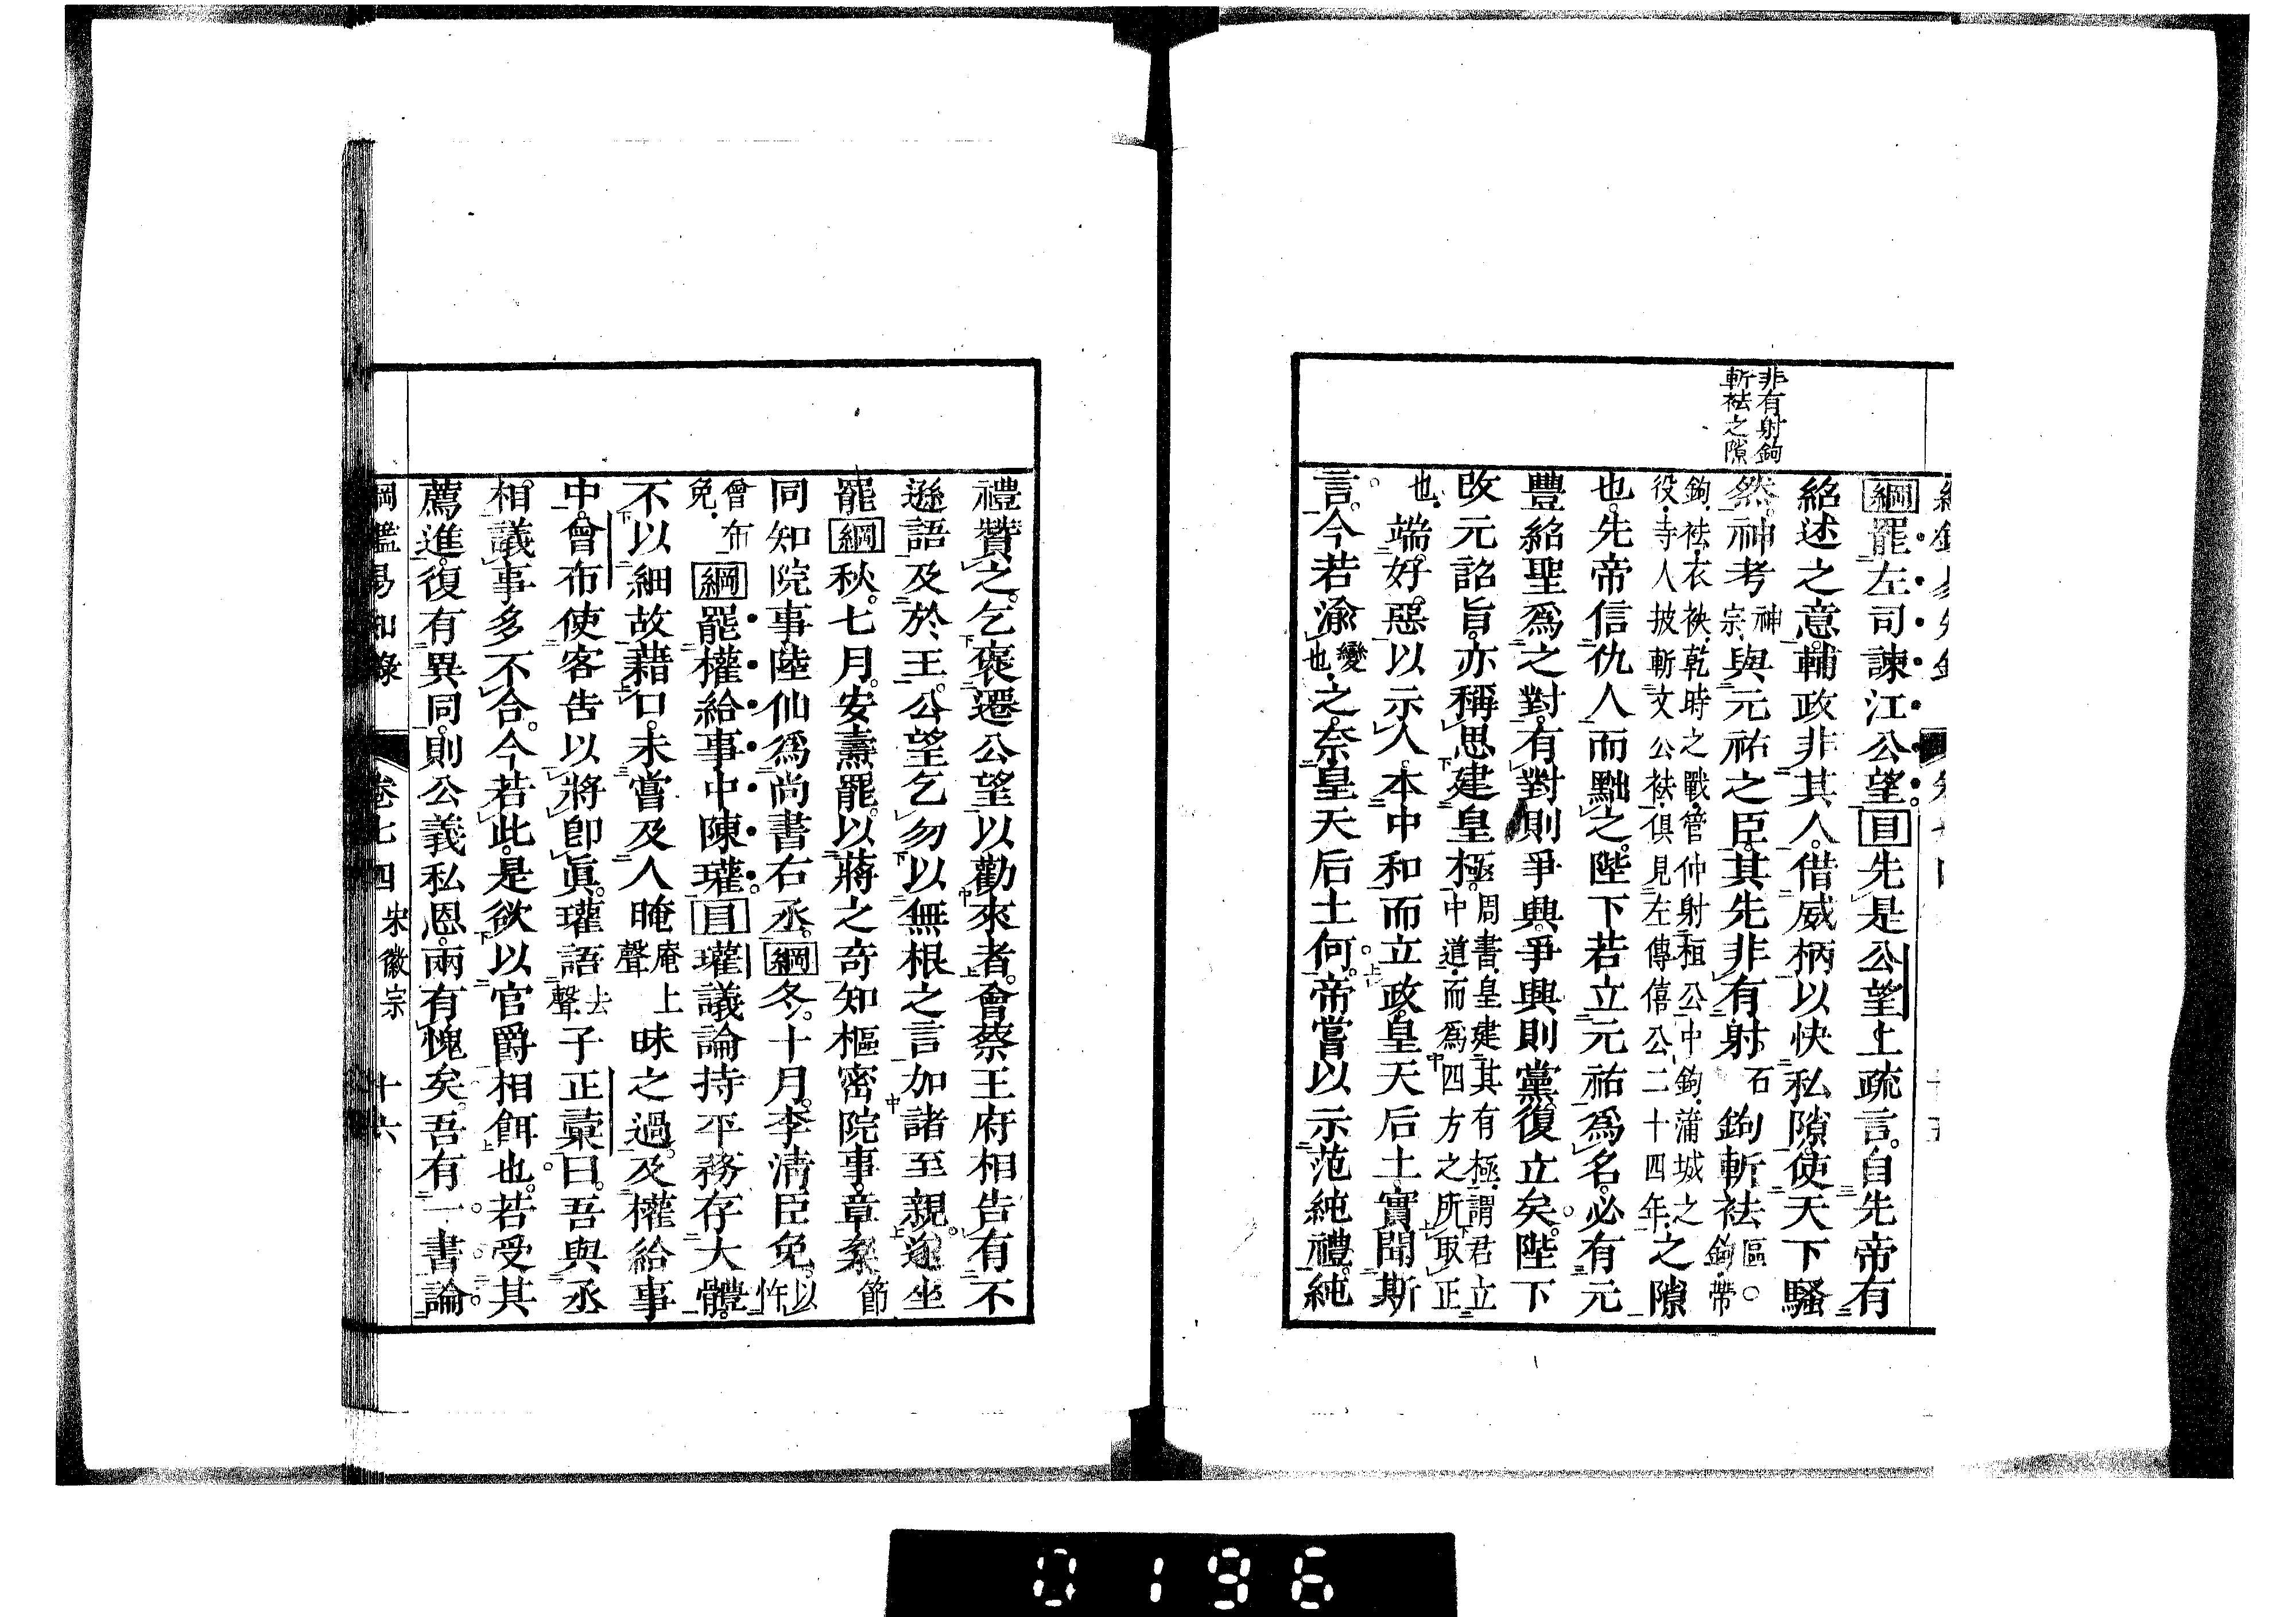 非有射鉤
斬袪之隙
綱罷左司諫江公望。目先是公望上疏言。自先帝有
紹述之意。輔政非其人。借威柄以快私隙。使天下騷
然。神考神宗與元祐之臣。其先非有射石鉤斬袪區〇鉤帶
鉤袪衣袂乾時之戰管仲射桓公中鉤蒲城之
役寺人披斬文公袪俱見左傳僖公二十四年之隙
也。先帝信仇人而黜之。陛下若立元祐爲名。必有元
豐紹聖爲之對。有對則爭興。爭興則黨復立矣。陛下
改元詔旨。亦稱思建皇極。周書皇建其有極謂君立
中道而爲四方之所取正
也端好惡以示人。本中和而立政。皇天后土。實聞斯
言。今若渝變也之。奈皇天后土何。帝嘗以示范純禮。純
禮贊之。乞褒遷公望以勸來者。會蔡王府相告有不
遜語及於王。公望乞勿以無根之言加諸至親。遂坐
罷綱秋。七月。安燾罷。以蔣之奇知樞密院事。章楶節
同知院事。陸佃爲尚書右丞。綱冬。十月。李清臣免。以忤
曾布免綱罷權給事中陳瓘。目瓘議論持平。務存大體。
不以細故藉口。未嘗及人晻庵上聲昧之過。及權給事
中。曾布使客告以將卽眞。瓘語去聲子正彙曰。吾與丞
相議事多不合。今若此。是欲以官爵相餌也。若受其
薦進。復有異同。則公義私恩。兩有愧矣。吾有一書論
綱鑑易知錄 卷七四 宋徽宗 十六